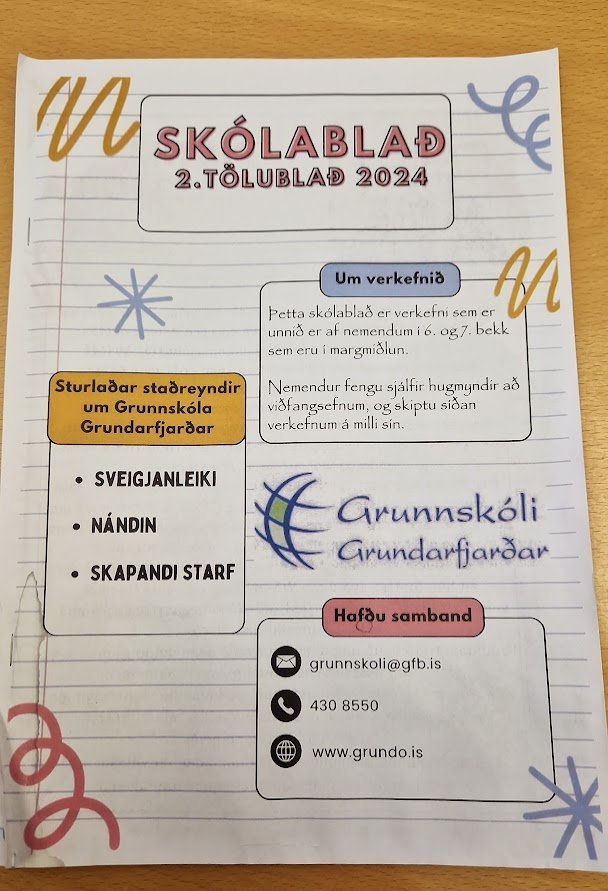 SKÓLABLAÐ
2.TÖLUBLAÐ 2024
Um verkefnið
Þetta skólablað er verkefni sem er
unnið er af nemendum í 6. og 7. bekk
sem eru í margmiðlun.
Nemendur fengu sjálfir hugmyndir að
viðfangsefnum, og skiptu síðan
verkefnum á milli sín.
Sturlaðar staðreyndir
um Grunnskóla
Grundarfjarðar
• SVEIGJANLEIKI
• NÁNDIN
• SKAPANDI STARF
Grunnskóli
Grundarfjarðar
Hafðu samband
grunnskoli@gfb.is
430 8550
www.grundo.is